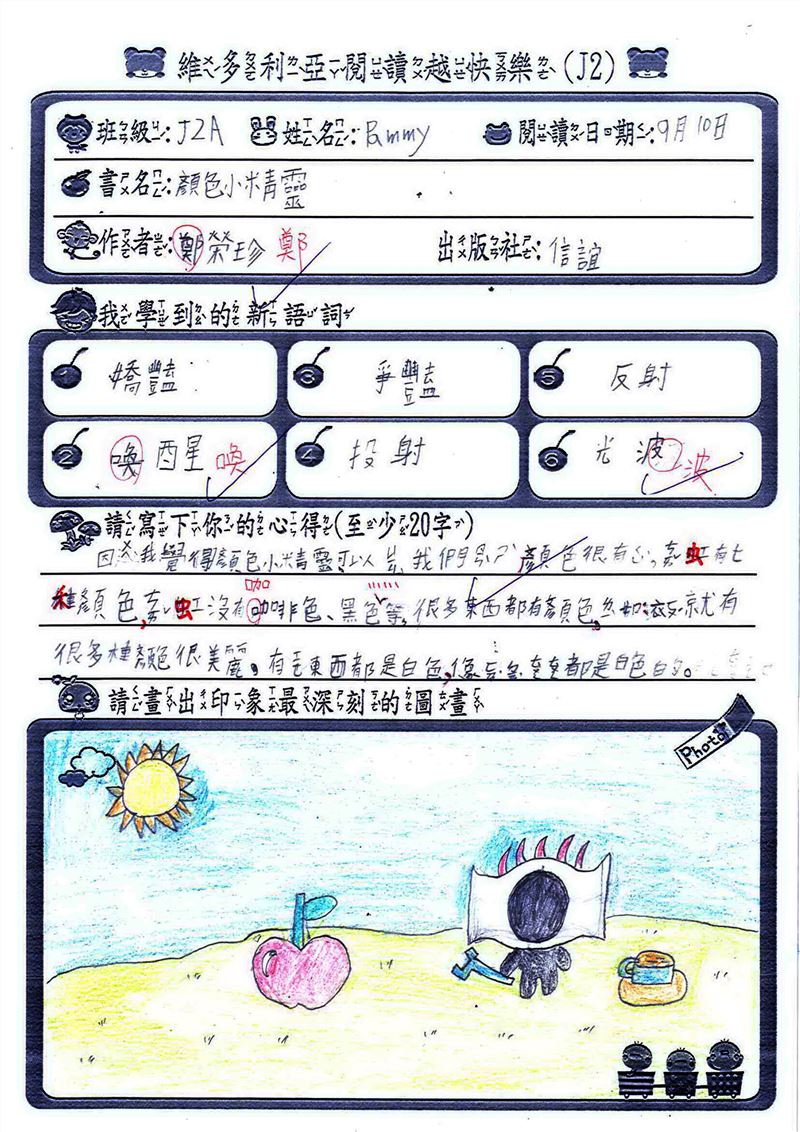 維多利亞閱讀越快樂(J2)
班級:J2A 姓名:Pammy 閱讀日期:9月10日
書名:顏色小精靈
作者:鄭榮珍 鄭 出版社:信誼
我學到的新語詞
1 嬌豔 3 爭豔 5 反射
2 喚醒 喚 4 投射 6 光波 波
請寫下你的心得(至少20字)
我覺得顏色小精靈可以 我們 顏色很有 虹有七
咖
種顏色, 虹沒有咖啡色、黑色等,很多東西都有顏色。 就有
很多種顏色很美麗。有 東西都是白色,像 都是白色的。
請畫出印象最深刻的圖畫
Photo